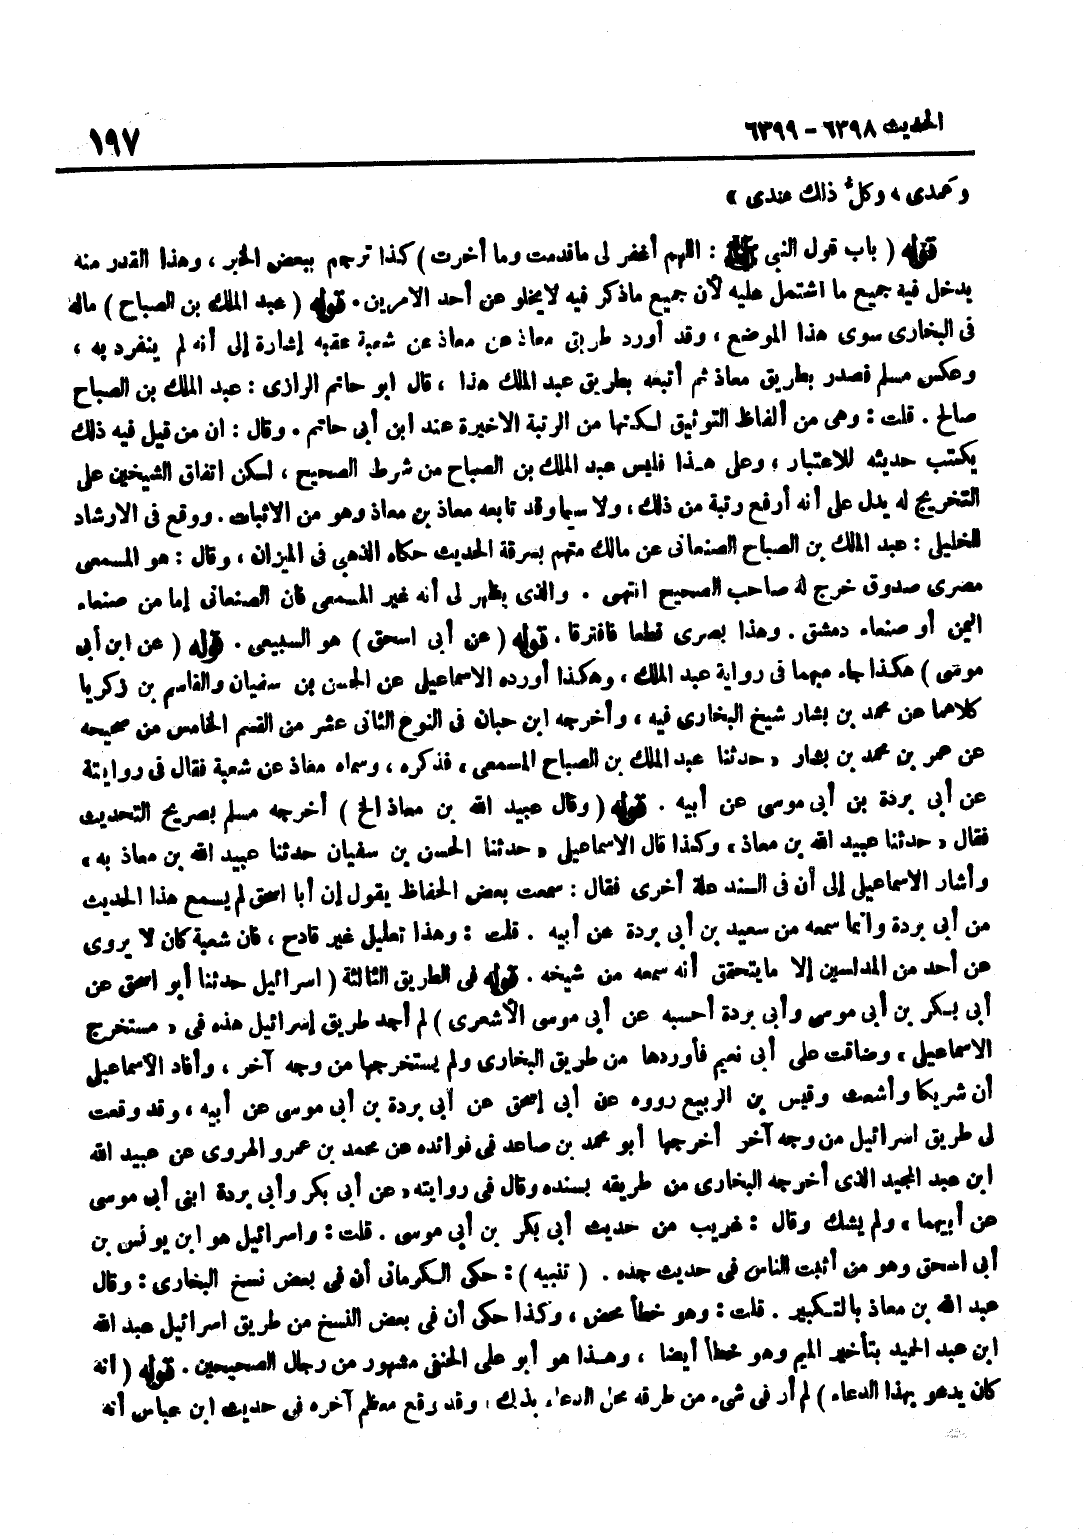 الحديث ٦٣٩٨ - ٦٣٩٩
١٩٧
وعمدى ، وكلُّ ذلك عندى »
قوله ( باب قول النبى ﷺ : اللهم أغفر لى ماقدمت وما أخرت ) كذا ترجم ببعض الخبر ، وهذا القدر منه
يدخل فيه جميع ما اشتمل عليه لأن جميع ماذكر فيه لايخلو عن أحد الامرين . قوله ( عبد الملك بن الصباح ) ماله
فى البخارى سوى هذا الموضع ، وقد أورد طريق معاذ عن معاذ عن شعبة عقبه إشارة إلى أنه لم ينفرد به ،
وعكس مسلم فصدر بطريق معاذ ثم أتبعه بطريق عبد الملك هذا ، قال ابو حاتم الرازى : عبد الملك بن الصباح
صالح . قلت : وهى من ألفاظ التوثيق لكنها من الرتبة الاخيرة عند ابن أبى حاتم . وقال : ان من قيل فيه ذلك
يكتب حديثه للاعتبار ، وعلى هذا فليس عبد الملك بن الصباح من شرط الصحيح ، لكن اتفاق الشيخين على
التخريج له يدل على أنه أرفع رتبة من ذلك ، ولا سيما وقد تابعه معاذ بن معاذ وهو من الاثبات . ووقع فى الارشاد
للخليلى : عبد الملك بن الصباح الصنعانى عن مالك متهم بسرقة الحديث حكاه الذهبى فى الميزان ، وقال : هو المسمعى
مصرى صدوق خرج له صاحب الصحيح انتهى . والذى يظهر لى أنه غير المسمعى فان الصنعانى إما من صنعاء
اليمن أو صنعاء دمشق . وهذا بصرى قطعا فافترقا . قوله ( عن أبى اسحق ) هو السبيعى . قوله ( عن ابن أبى
موسى ) هكذا جاء مبهما فى رواية عبد الملك ، وهكذا أورده الاسماعيلى عن الحسن بن سفيان والقاسم بن زكريا
كلاهما عن محمد بن بشار شيخ البخارى فيه ، وأخرجه ابن حبان فى النوع الثانى عشر من القسم الخامس من صحيحه
عن عمر بن محمد بن بشار « حدثنا عبد الملك بن الصباح المسمعى ، فذكره ، وسماه معاذ عن شعبة فقال فى روايتة
عن أبى بردة بن أبى موسى عن أبيه . قوله ( وقال عبيد الله بن معاذ الخ ) أخرجه مسلم بصريح التحديث
فقال « حدثنا عبيد الله بن معاذ ، وكذا قال الاسماعيلى « حدثنا الحسن بن سفيان حدثنا عبيد الله بن معاذ به »
وأشار الاسماعيلى إلى أن فى السند علة أخرى فقال : سمعت بعض الحفاظ يقول إن أبا اسحق لم يسمع هذا الحديث
من أبى بردة وانما سمعه من سعيد بن أبى بردة عن أبيه . قلت : وهذا تعليل غير قادح ، فان شعبة كان لا يروى
عن أحد من المدلسين إلا مايتحقق أنه سمعه من شيخه . قوله فى الطريق الثالثة ( اسرائيل حدثنا أبو اسحق عن
أبى بكر بن أبى موسى وأبى بردة أحسبه عن أبى موسى الأشعرى ) لم أجد طريق إسرائيل هذه فى « مستخرج
الاسماعيلى ، وضاقت على أبى نعيم فأوردها من طريق البخارى ولم يستخرجها من وجه آخر ، وأفاد الأسماعيلى
أن شريكا وأشعث وقيس بن الربيع رووه عن أبى إسحق عن أبى بردة بن أبى موسى عن أبيه ، وقد وقعت
لى طريق اسرائيل من وجه آخر أخرجها أبو محمد بن صاعد فى فوائده عن محمد بن عمرو الهروى عن عبيد الله
ابن عبد المجيد الذى أخرجه البخارى من طريقه بسنده وقال فى روايته « عن أبى بكر وأبى بردة ابنى أبى موسى
عن أبيهما ، ولم يشك وقال : غريب من حديث أبى بكر بن أبى موسى . قلت : واسرائيل هو ابن يونس بن
أبى اسحق وهو من أثبت الناس فى حديث جده . ( تنبيه ) : حكى الكرمانى أن فى بعض نسخ البخارى : وقال
عبد الله بن معاذ بالتكبير . قلت : وهو خطأ محض ، وكذا حكى أن فى بعض النسخ من طريق اسرائيل عبد الله
ابن عبد الحميد بتأخير الميم وهو خطأ أيضا ، وهذا هو أبو على الحنفى مشهور من رجال الصحيحين . قوله ( أنه
كان يدعو بهذا الدعاء ) لم أر فى شىء من طرقه محل الدعاء بذلك ، وقد وقع معظم آخره فى حديث ابن عباس أنه